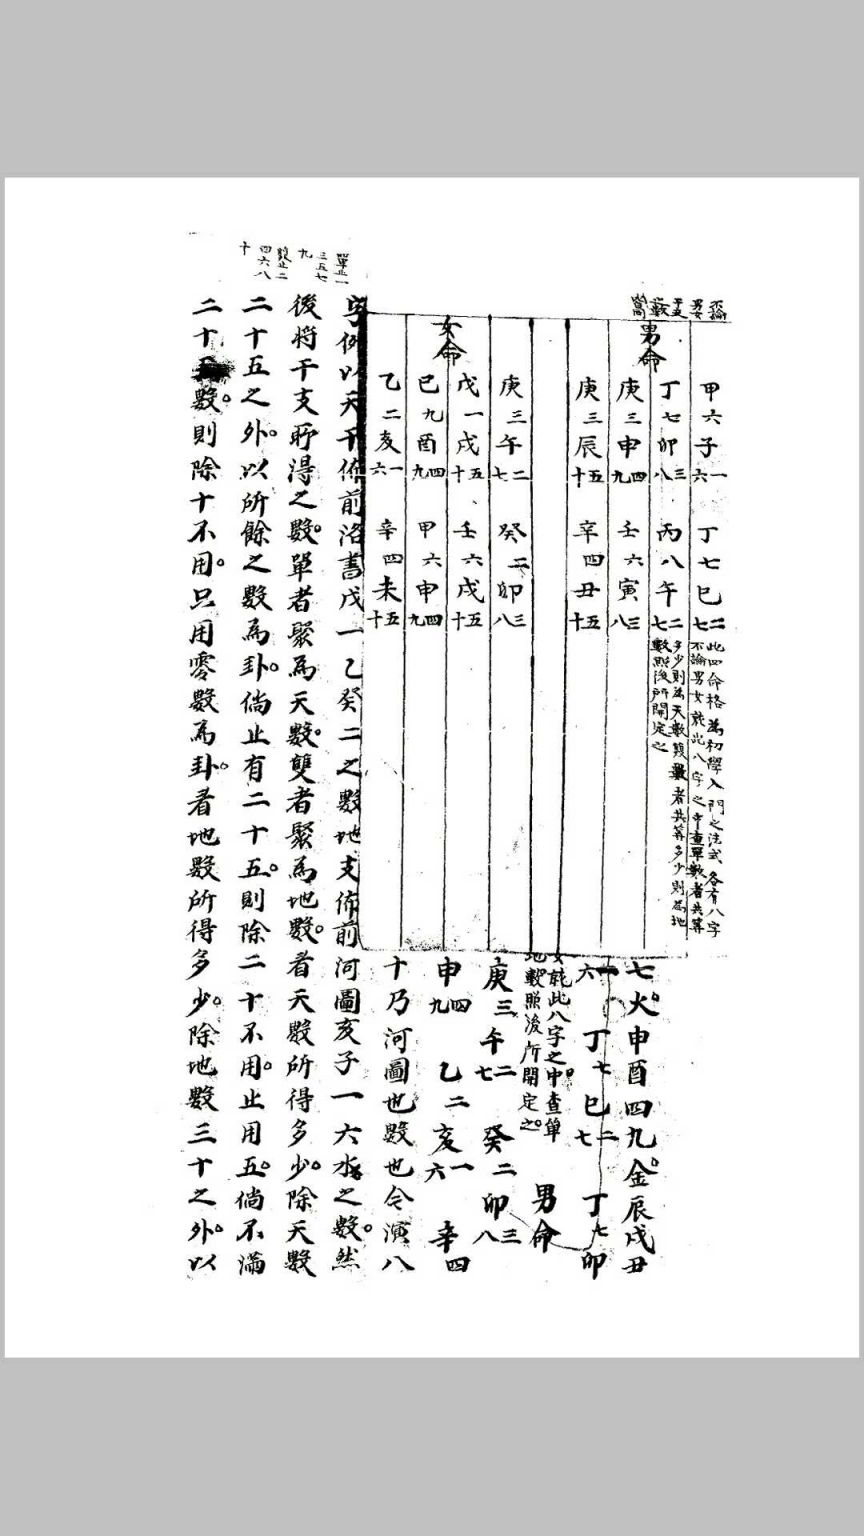 不論
男女
干支
數
男命
甲六子一六
丁七巳二七
丁七卯三八
丙八午二七
庚三申四九
壬六寅三八
庚三辰五十
辛四丑五十
此四命格為初學入門之法式各有八字
不論男女就此八字之中查單數者共算
多少則為天數雙數者共算多少則為地
數照後所開定之
庚三午二七
癸二卯三八
女命
戊一戌五十
壬六戌五十
己九酉四九
甲六申四九
乙二亥一六
辛四未五十
七火申酉四九金辰戌丑
一六 丁七巳二七 丁七卯
女就此八字之中查單
地數照後所開定之 男命
庚三午二七 癸二卯三八
申四九 乙二亥一六 辛四
十乃河圖也數也今演八
單止一
三五七
九
雙止二
四六八
十
字例以天干佈前洛書戊一乙癸二之數地支佈前河圖亥子一六水之數然
後將干支所得之數單者聚為天數雙者聚為地數看天數所得多少除天數
二十五之外以所餘之數為卦倘止有二十五則除二十不用止用五倘不滿
二十五數則除十不用只用零數為卦看地數所得多少除地數三十之外以